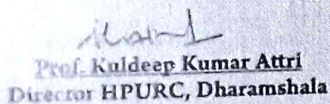 Prof. Kuldeep Kumar Attri
Director HPURC, Dharamshala